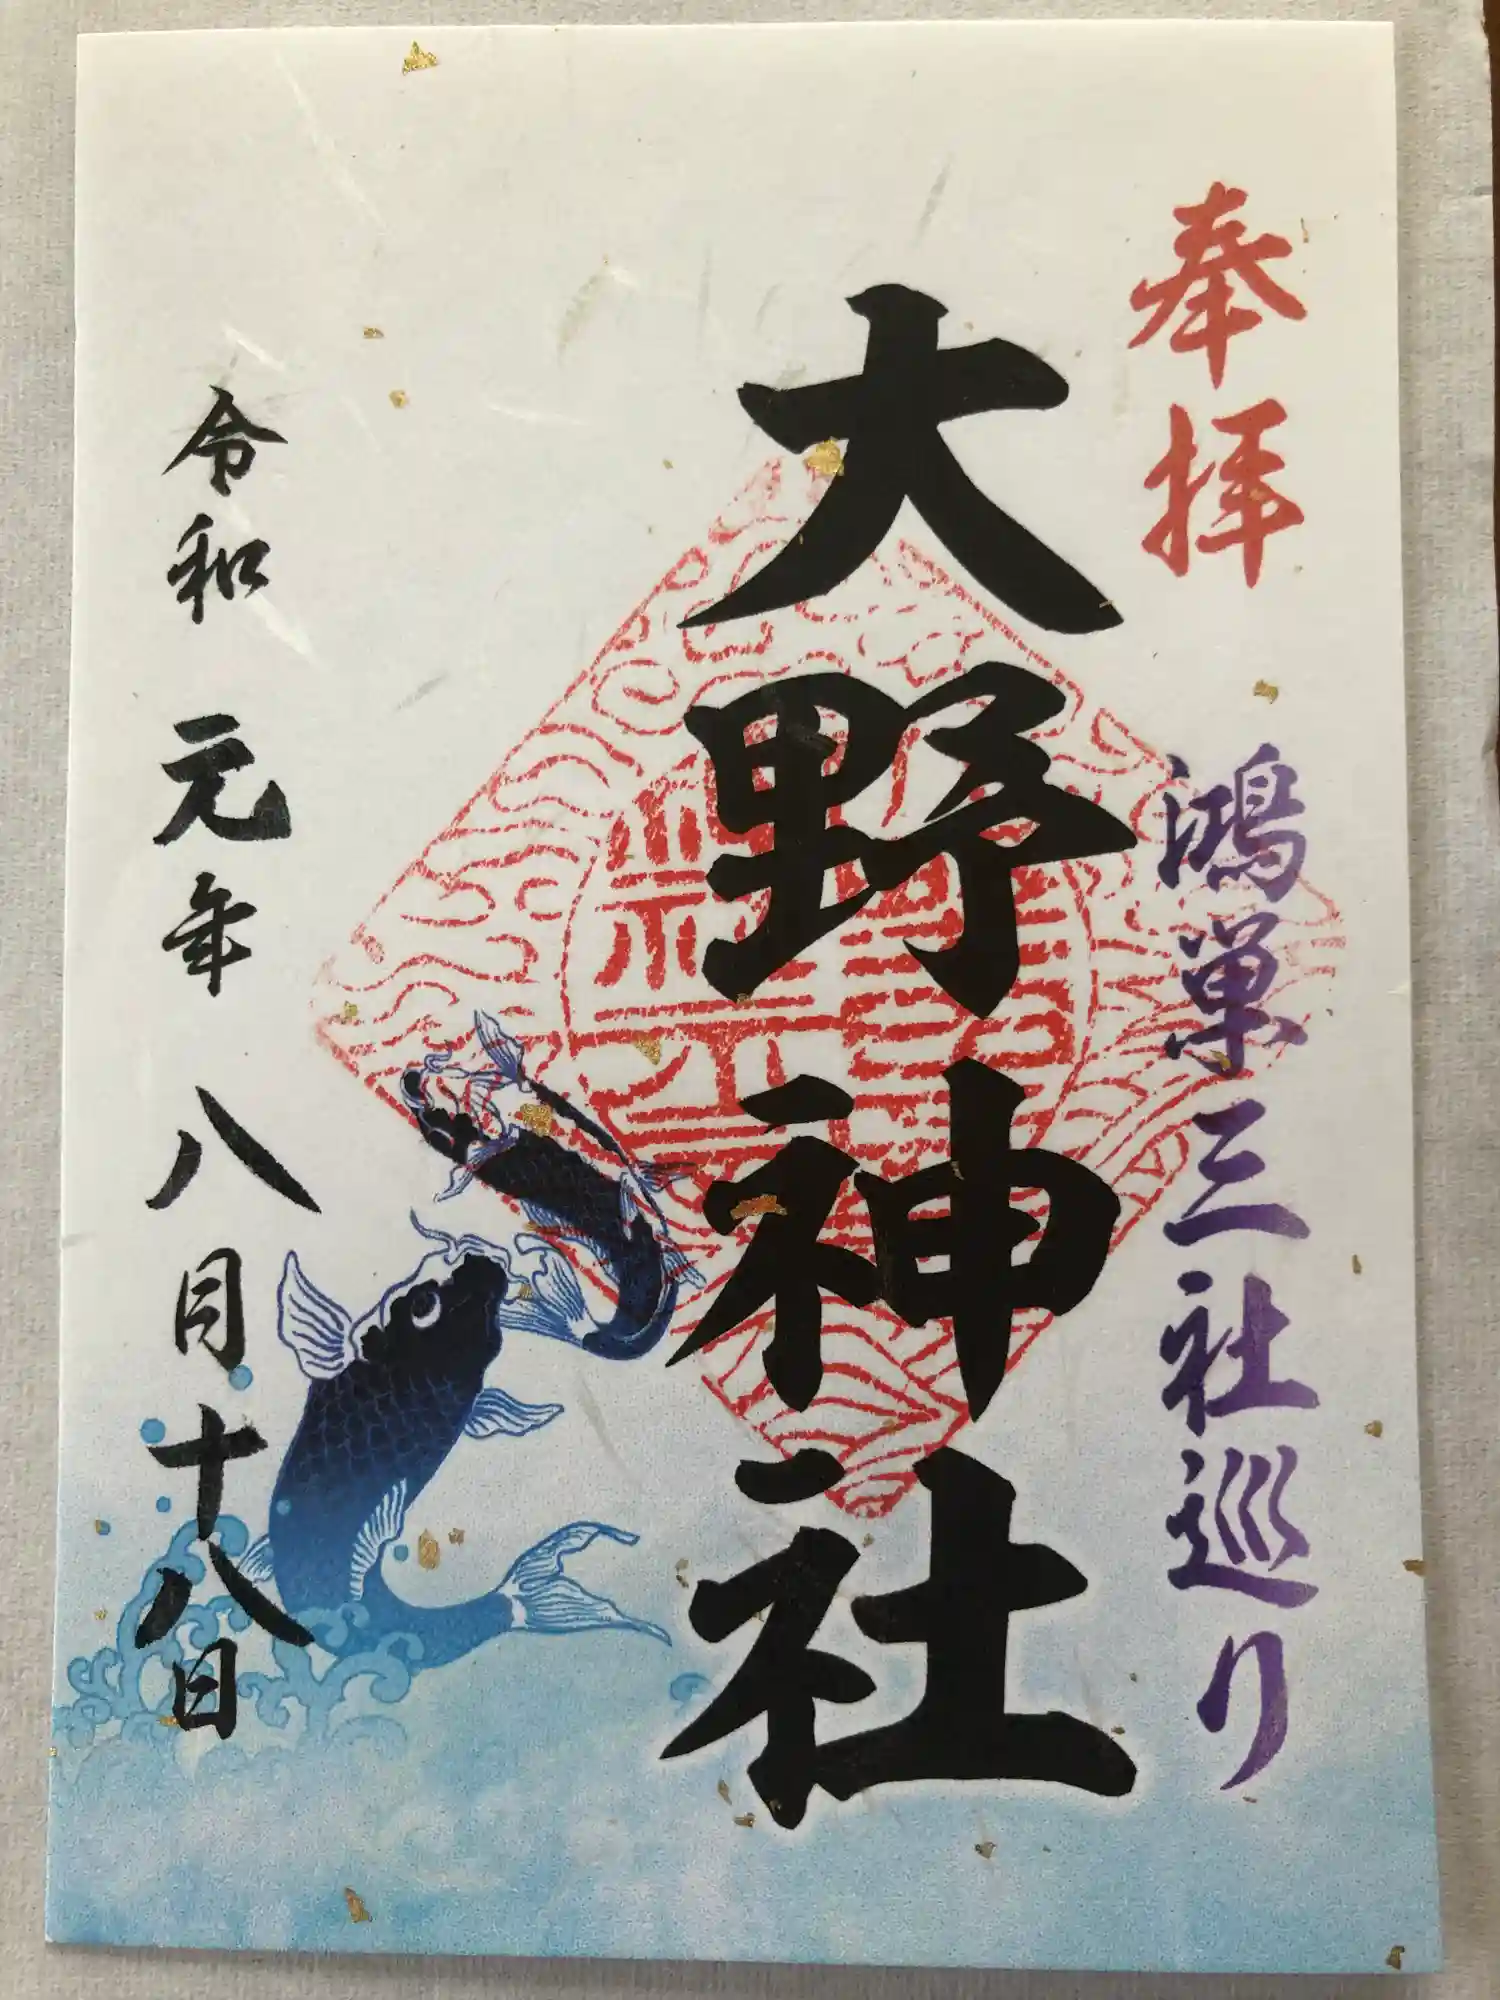 奉拝 鴻巣三社巡り
大野神社
令和元年八月十八日